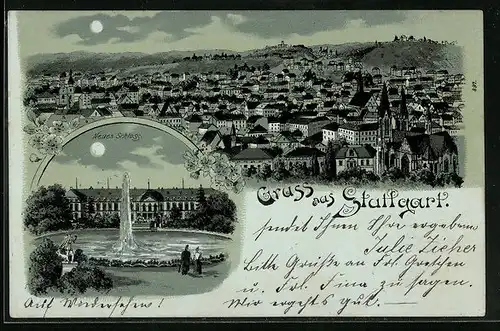 Neues Schloss.
Gruss aus Stuttgart.
sendet Ihnen Ihre ergebene
Julie Zicher
Bitte Grüße an Frl. Gretchen
u. Frl. Fina zu sagen.
Mir ergehts gut.
Auf Wiedersehen!